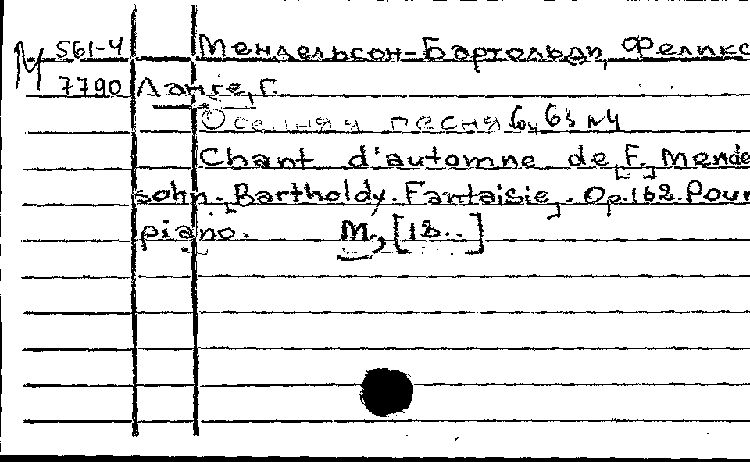 М 561-4 Мендельсон-Бартольди, Феликс
7790 Ланге, Г.
Осенняя песня Соч 63 № 4
Chant d'automne de F. Mende
sohn-Bartholdy. Fantaisie. Op.162. Pour
piano. М., [18..]